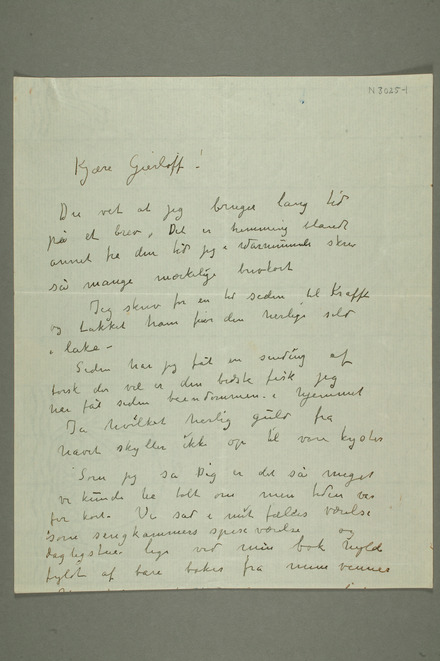 N 3025-1
Kjære Gierløff!
Du vet at jeg bruger lang tid
på et brev, Det er hemning blandt
annet fra den tid jeg i Warnemünde skrev
så mange mærkelige brevkort
Jeg skrev for en tid siden til Krafft
og takket ham for den herlige sild
i lake –
Siden har jeg fåt en sending af
torsk der vel er den bedste fisk jeg
har fåt siden barndommen i hjemmet
Ja hvilket herlig guld fra
havet skyller ikke op til vore kyster
Som jeg sa Dig er det så meget
vi kunde ha talt om men tiden var
for kort. Vi sad i mit fælles værelse
som sengkammers spise værelse og
dagligstue lige ved min bok hylde
fyldt af bare bøker fra mine venner